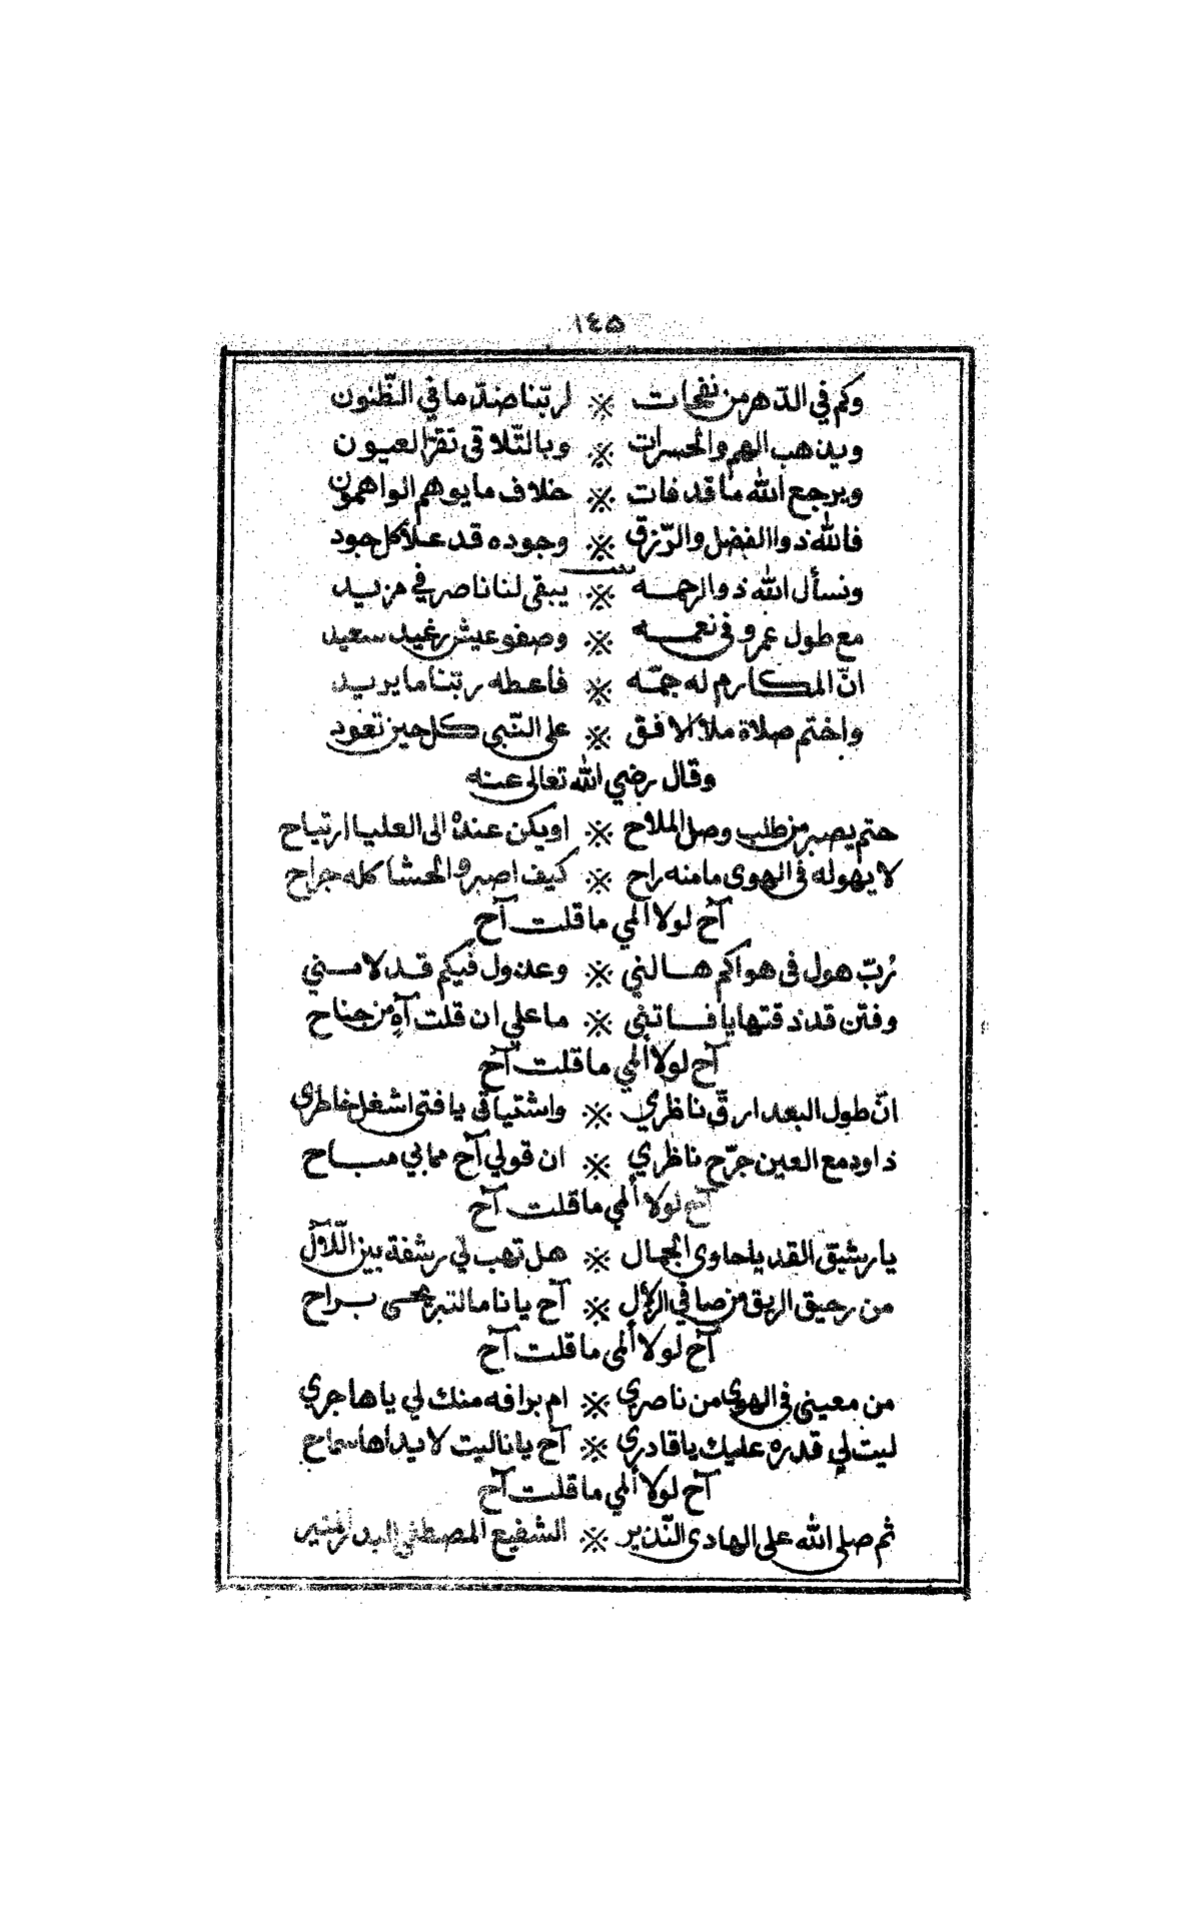 ١٤٥
وكم في الدّهر من نفحات ※ لربّنا ضدّ ما في الظّنون
ويذهب الهم والحسرات ※ وبالتّلاقي تقرّ العيون
ويرجع الله ما قد فات ※ خلاف ما يوهم الواهمون
فالله ذوا الفضل والرّزق ※ وجوده قد علأ كل جود
ونسأل الله ذو الرحمه ※ يبقى لنا ناصر في مزيد
مع طول عمرو في نعمه ※ وصفو عيش رغيد سعيد
انّ المكارم له جمّه ※ فاعطه ربّنا ما يريد
واختم صلاة ملأ الافق ※ على النّبي كل حين تعود
وقال رضي الله تعالى عنه
حتم يصبر من طلب وصل الملاح ※ او يكن عنده الى العليا ارتياح
لا يهوله في الهوى ما منه راح ※ كيف اصبر والحشا كله جراح
آح لولا المي ما قلت آح
رُبّ هول في هواكم هالني ※ وعذول فيكم قد لامني
وفتن قد ذقتها يا فاتني ※ ما علي ان قلت آهٍ من جناح
آح لولا ألمي ما قلت آح
انّ طول البعد ارّق ناظري ※ واشتياقي يا فتى اشغل خاطري
ذا ودمع العين جرّح ناظري ※ ان قولي آح مما بي مباح
آح لولا ألمي ما قلت آح
يا رشيّق القد يا حاوي الجمال ※ هل تهب لي رشفة بين الّلآل
من رحيق الريق من صافي الزلال ※ آح يا نا ما لتبريحى براح
آح لولا ألمي ما قلت آح
من معيني في الهوى من ناصري ※ ام برافه منك لي يا هاجري
ليت لي قدره عليك يا قادري ※ آح يا نا ليت لا يداها سماح
آح لولا ألمي ما قلت آح
ثم صلى الله على الهادي النّذير ※ الشفيع المصطفى البدر المنير